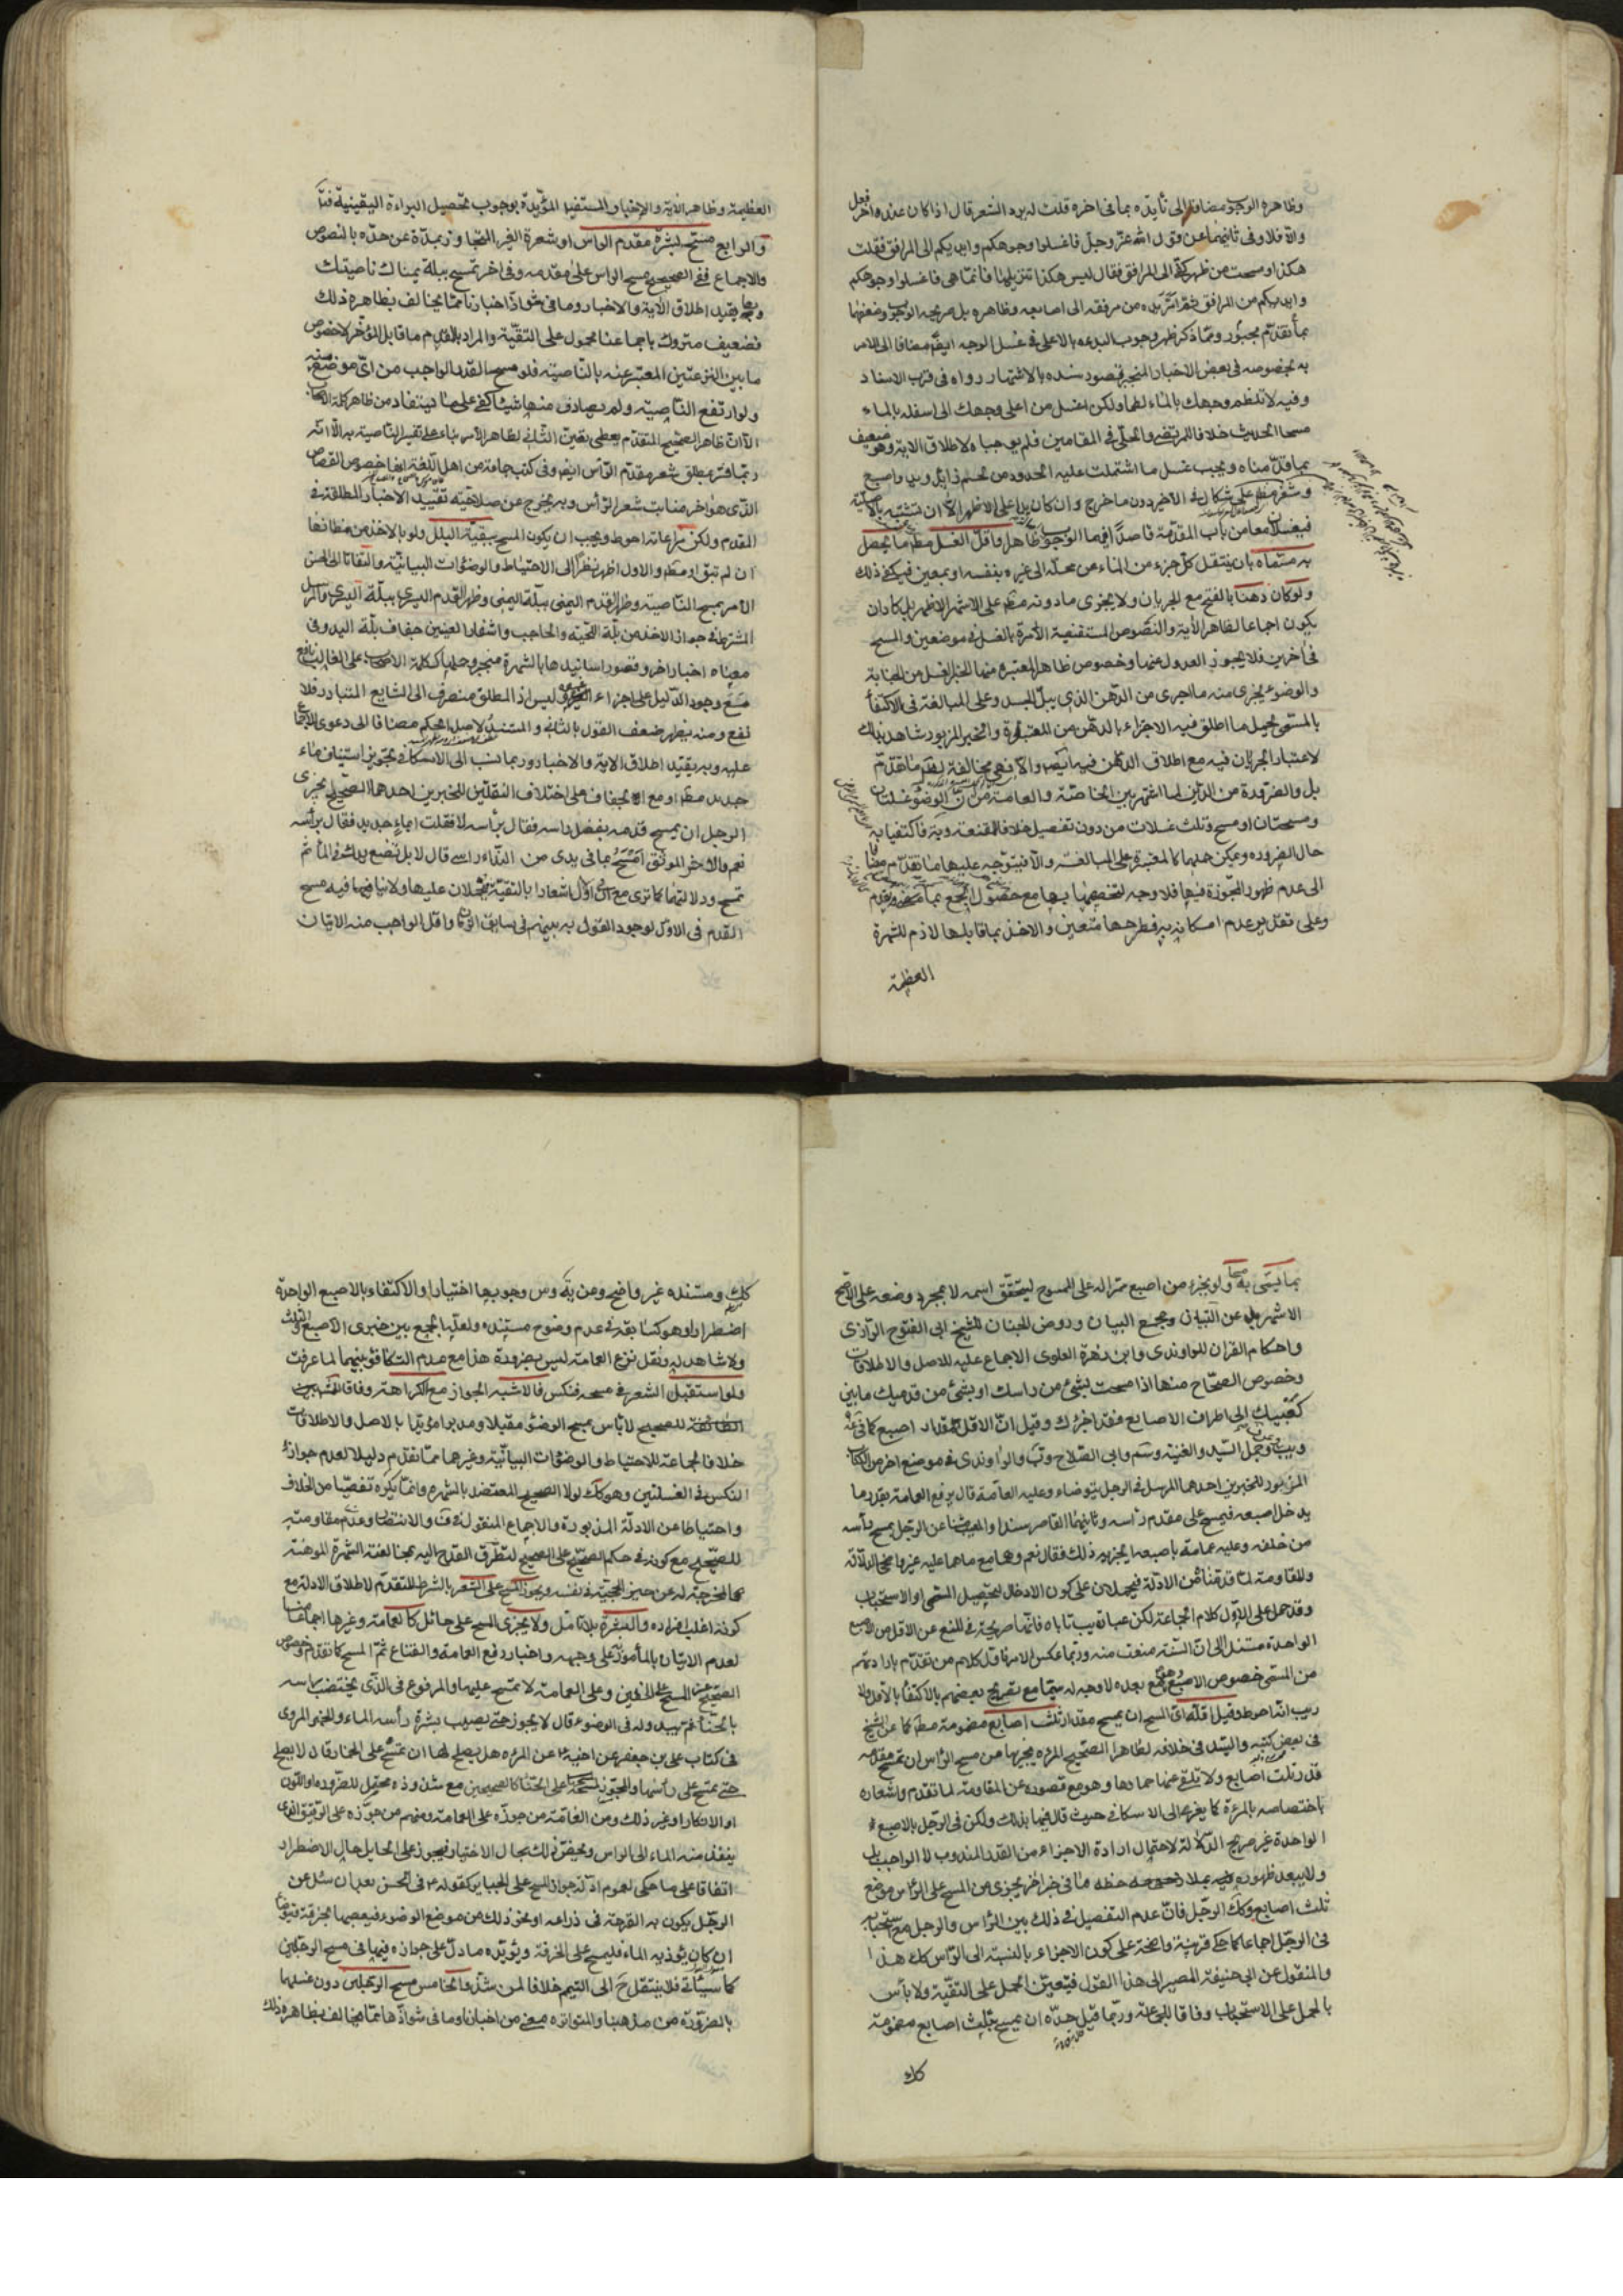 وظاهره الوجوب مضافا الى تأيده بما في اخره قلت له يرد الشعر قال اذا كان عنده اخر فعل
والا فلا وفي ثانيهما عن قول الله عز وجل فاغسلوا وجوهكم وايديكم الى المرافق فقلت
هكذا ومسحت من ظهر كفي الى المرافق فقال ليس هكذا تنزيلها فانما هي فاغسلوا وجوهكم
وايديكم من المرافق ثم امر يده من مرفقه الى اصابعه وظاهره بل صريحه الوجوب وضعفهما
بما تقدم مجبور ومما ذكر ظهر وجوب البدءه بالاعلى في غسل الوجه ايضا مضافا الى الامر
به بخصوصه في بعض الاخبار المنجبر قصور سنده بالاشتهار رواه في قرب الاسناد
وفيه لا تلطم وجهك بالماء لطما ولكن اغسل من اعلى وجهك الى اسفله بالماء
مسحا الحديث خلافا للمرتضى والحلي في المقامين فلم يوجباه لاطلاق الاية وهو ضعيف
بما قدمناه ويجب غسل ما اشتملت عليه الحدود من لحم زايد ويد واصبع
وشعر مطم على اشكال في الاخير دون ما خرج وان كان يدا على الاظهر الا ان تشتبه بالاصلية
فيغسلان معا من باب المقدمة
به مسماه بان ينتقل كل جزء من الماء من محله الى غيره بنفسه او بمعين فيكفي ذلك
ولو كان دهنا بالفتح مع الجريان ولا يجزى مادونه مطم على الاشهر الاظهر بل كاد ان
يكون اجماعا لظاهر الأية والنصوص المستفيضة الأمرة بالغسل في موضعين والمسح
في اخرين فلا يجوز العدول عنهما وخصوص ظاهر المعتبرة منها الخبر الغسل من الجنابة
والوضوء يجزى منه ما اجرى من الدهن الذي يبل الجسد وعلى المبالغة في الاكتفأ
بالمسمى يحمل ما اطلق فيه الاجزاء بالدهن من المعتبرة والخبر المزبور شاهد بذلك
لاعتبار الجريان فيه مع اطلاق الدهن فيه ايضا والا فهي مخالفة لما تقدم
بل والضرورة من الدين لما اشتهر بين الخاصة والعامة من ان الوضوء غسلتان
ومسحتان او مسح وثلث غسلات من دون تفصيل خلافا للمقنعة
حال الضرورة ويمكن حملها كالمعتبرة على المبالغة والا فيتوجه عليهما ما تقدم مضافا
الى عدم ظهور المجوزة فيها فلا وجه لتخصيصها بها مع حصول الجمع بما
وعلى تقدير عدم امكانه به فطرحها متعين والاخذ بما قابلها لازم للشهرة
العظيمة
العظيمة وظاهر الاية والاخبار المستفيضة المؤيدة بوجوب تحصيل البراءة اليقينية
والرابع مسح بشرة مقدم الراس او شعره الغير المتجاوز بمده عن حده بالنصوص
والاجماع ففي الصحيح مسح الراس على مقدمه وفي اخر تمسح ببلة يمناك ناصيتك
وبها يقيد اطلاق الاية والاخبار وما في شواذ اخبارنا مما يخالف بظاهره ذلك
فضعيف متروك باجماعنا محمول على التقية والمراد بالمقدم ما قابل المؤخر لا خصوص
ما بين النزعتين المعبر عنه بالناصية فلو مسح القدر الواجب من اي موضع منه
ولو ارتفع الناصية ولم يصادف منها شيئا كفى على ما يستفاد من ظاهر كلمة الاصحاب
الا ان ظاهر الصحيح المتقدم يعطي تعين الثاني لظاهر الامر بناء على تفسير الناصية به الا انه
ربما فسر بمطلق شعر مقدم الرأس ايضا وفي كتب جماعة من اهل اللغة انها خصوص القصاص
الذي هو اخر منابت شعر الرأس وبه يخرج عن صلاحية تقييد الاخبار المطلقة في
المقدم ولكن مراعاته احوط ويجب ان يكون المسح ببقية البلل ولو بالاخذ من مظانها
ان لم تبق او مطم والاول اظهر نظرا الى الاحتياط والوضوءات البيانية والتفاتا الى
الامر بمسح الناصية وظهر القدم اليمنى ببلة اليمنى وظهر القدم اليسرى ببلة اليسرى والمرسل
المشترط في جواز الاخذ من بلة اللحية والحاجب واشفار العينين جفاف بلة اليد وفي
معناه اخبار اخر وقصور اسانيدها بالشهرة منجبر وحملها ككلمة الاصحاب على الغالب
مع وجود الدليل على اجزاء ليس اذ المطلق منصرف الى الشايع المتبادر فلا
نفع ومنه يظهر ضعف القول بالثاني والمستند لاصل المحكم مضافا الى دعوى الاجماع
عليه وبه يقيد اطلاق الاية والاخبار وربما نسب الى الاسكافي تجويز استيناف ماء
جديد مطم او مع الجفاف على اختلاف النقلين للخبرين احدهما الصحيح يجزى
الرجل ان يمسح قدميه بفضل راسه فقال برأسه لا فقلت ابماء جديد فقال برأسه
نعم والاخر الموثق امسح بما في يدي من النداء راسي قال لا بل تضع يدك في الماء ثم
تمسح ودلالتهما كما ترى مع ان في الاول اشعارا بالتقية فيحملان عليها ولا ينافيها فيه مسح
القدم في الاول لوجود القول به بينهم في سابق الزمان واقل الواجب منه الاتيان
بما يسمى به مسحا ولو بجزء من اصبع ممرا له على الممسوح ليتحقق اسمه لا بمجرد وضعه على الاصح
الاشهر بل عن التبيان ومجمع البيان وروض الجنان للشيخ ابي الفتوح الرازي
واحكام القران للراوندي وابن زهرة العلوي الاجماع عليه للاصل والاطلاقات
وخصوص الصحاح منها اذا مسحت بشئ من راسك او بشئ من قدميك ما بين
كعبيك الى اطراف الاصابع فقد اجزئك وقيل ان الاقل مقدار اصبع كما في
السيد والغنية وابي الصلاح والراوندي في موضع اخر من الكتاب
المزبور للخبرين احدهما المرسل في الرجل يتوضاء وعليه العمامة قال يرفع العمامة بقدر ما
يدخل اصبعه فيمسح على مقدم رأسه وثانيهما القاصر سندا عن الرجل يمسح رأسه
من خلفه وعليه عمامة باصبعه ايجزيه ذلك فقال نعم وهما مع ما هما عليه غير واضحي الدلالة
وللمقاومة لما قدمنا من الادلة فيحملان على كون الادخال لتحصيل المسمى او الاستحباب
وقد حمل على الاول كلام الجماعة لكن عبارة يب تاباه فانها صريحة في المنع عن الاقل من الاصبع
الواحدة مستندا الى ان السنة منعت منه وربما عكس الامر فاول كلام من تقدم بارادتهم
من المسمى خصوص الاصبع بعده لا وجه له سيما مع تصريح بعضهم بالاكتفأ بالاقل ولا
ريب انه احوط وقيل اقله اي المسح ان يمسح مقدار ثلث اصابع مضمومة مطم كما عن الشيخ
في بعض كتبه والسيد في خلافه لظاهر الصحيح المرءه يجزيها من مسح الراس ان تمسح مقدمه
قدر ثلث اصابع ولا تلقي عنها خمارها وهو مع قصوره عن المقاومة لما تقدم واشعاره
باختصاصه بالمرءة كما يعزى الى الاسكافي حيث قال فيها بذلك ولكن في الرجل بالاصبع
الواحدة غير صريح الدلالة لاحتمال ارادة الاجزاء من القدر المندوب لا الواجب بل
ولا يبعد ظهوره فيه بملاحظة ما في خبر اخر يجزي من المسح على الراس موضع
ثلث اصابع وكك الرجل فان عدم التفصيل في ذلك بين الرأس والرجل مع استحبابه
في الرجل اجماعا كما حكي قرينة واضحة على كون الاجزاء بالنسبة الى الرأس كك هذا
والمنقول عن ابي حنيفة المصير الى هذا القول فيتعين الحمل على التقية ولا بأس
بالحمل على الاستحباب وفاقا للجماعة وربما قيل حده ان يمسح بثلث اصابع مضمومة
كك
كك ومستنده غير واضح ومن وجوبها اختيارا والاكتفاء بالاصبع الواحدة
اضطرارا وهو كسابقه في عدم وضوح مستنده ولعله الجمع بين خبري الاصبع والثلث
ولا شاهد له ونقل نزع العمامة ليس بضرورة هذا مع عدم التكافؤ بينهما لما عرفت
ولو استقبل الشعر في مسحه فنكس فالاشبه الجواز مع الكراهة وفاقا للمشهور
للصحيح لا بأس بمسح الوضوء مقبلا ومدبرا مؤيدا بالاصل والاطلاقات
خلافا لجماعة للاحتياط والوضوءات البيانية وغيرهما مما تقدم دليلا لعدم جواز
النكس في الغسلتين وهو كك لولا الصحيح المعتضد بالشهرة وانما يكره تفصيا من الخلاف
واحتياطا عن الادلة المذبورة والاجماع المنقول والانتصار وعدم مقاومته
للصحيح مع كونه في حكم الصحيح على الصحيح لتطرق القدح اليه بمخالفته الشهرة الموهنة
المخرجة له عن حيز الحجية في نفسه ويجوز المسح على الشعر بالشرط المتقدم لاطلاق الادلة مع
كونه اغلب افراده والبشرة بلا تامل ولا يجزى المسح على حائل كالعمامة وغيرها اجماعا منا
لعدم الاتيان بالمأمور على وجهه واخبار رفع العمامة والقناع ثم المسح كما تقدم وخصوص
الصحيح عن المسح على الخفين وعلى العمامة لا تمسح عليهما والمرفوع في الذي يخضب راسه
بالحناء ثم يبدو له في الوضوء قال لا يجوز حتى يصيب بشرة رأسه الماء والخبر المروي
في كتاب علي بن جعفر عن اخيه عن المرءه هل يصلح لها ان تمسح على الخمار قال لا يصلح
حتى تمسح على رأسها والمجوز لمسحه على الحناء كالصحيحين مع شذوذه محتمل للضروره او اللون
او الانكار او غير ذلك ومن العامة من جوزه على العمامة ومنهم من جوزه على الرقيق الذي
ينفذ منه الماء الى الراس ويختص ذلك بحال الاختيار فيجوز على الحايل حال الاضطرار
اتفاقا على ما حكي لعموم ادلة جواز المسح على الجباير كقوله في الحسن بعد ان سئل عن
الرجل يكون به القرحة في ذراعه او نحو ذلك من موضع الوضوء فيعصبها بخرقة فيتوضأ
ان كان يؤذيه الماء فليمسح على الخرقة ويؤيده ما دل على جوازه فيها في مسح الرجلين
كما سيأتي فلا ينتقل ح الى التيمم خلافا لمن شذ والخامس مسح الرجلين دون غسلهما
بالضرورة من مذهبنا والمتواترة معنى من اخبارنا وما في شواذها مما يخالف بظاهره ذلك